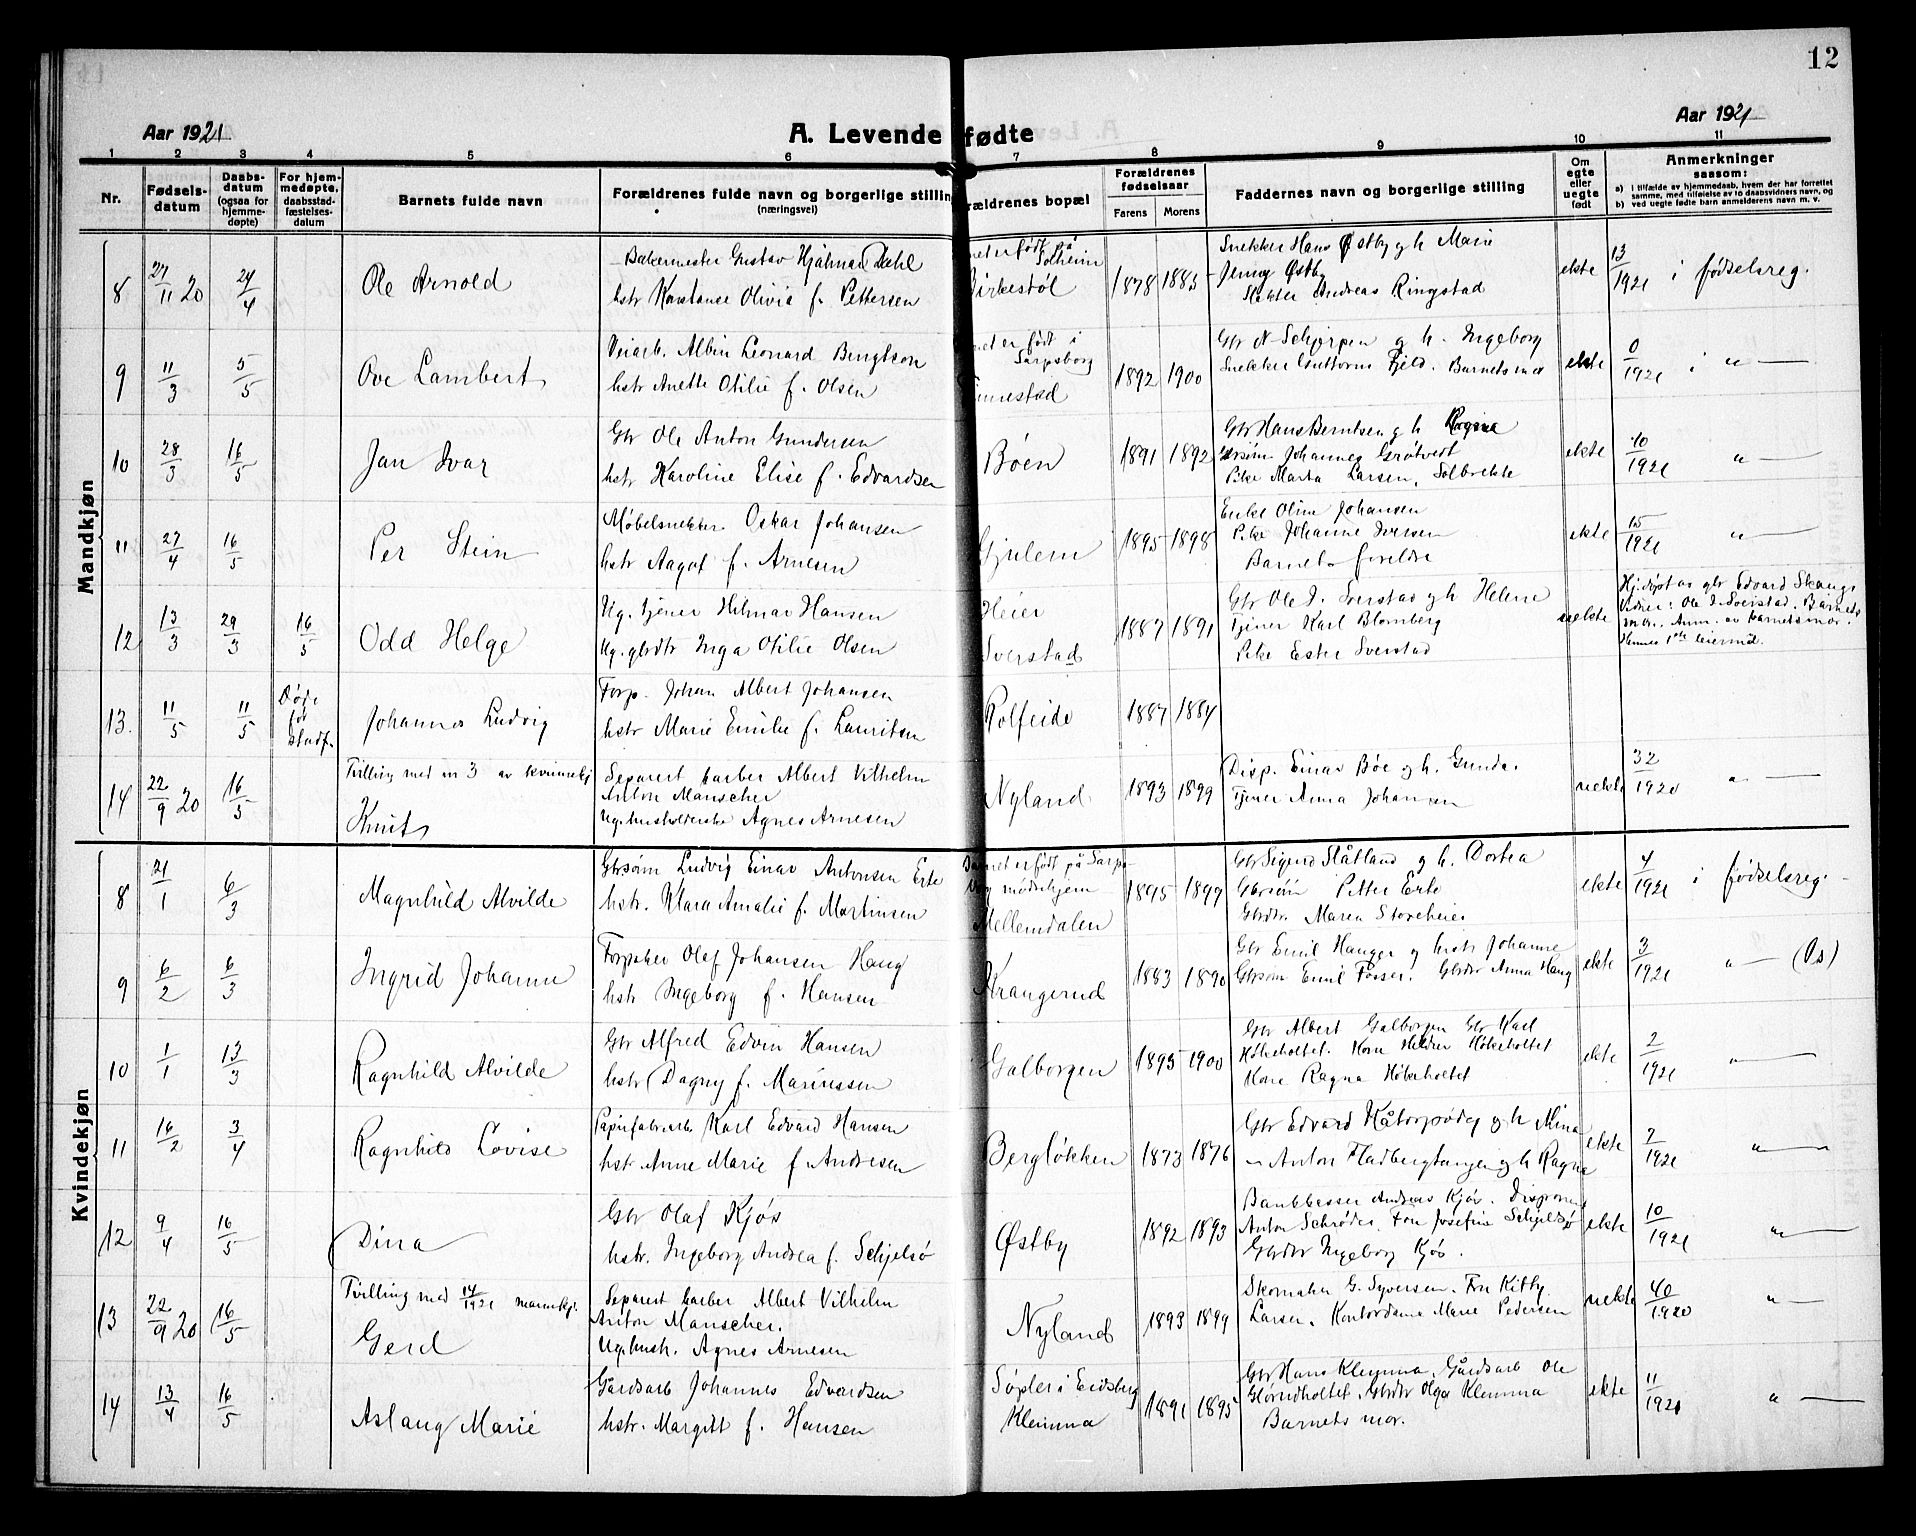 12
Aar 1921
A. Levende fødte
Aar 1921
1 2 3 4 5 6 7 8 9 10 11
Nr.
Fødselsdatum
Daabsdatum (ogsaa for hjemmedøpte)
For hjemmedøpte, daabsstadfæstelsesdatum
Barnets fulde navn
Forældrenes fulde navn og borgerlige stilling
(næringsvei)
rældrenes bopæl
Forældrenes fødselsaar
Farens
Morens
Faddernes navn og borgerlige stilling
Om egte eller uegte født
Anmerkninger saasom:
a) i tilfælde av hjemmedaab, hvem der har forrettet samme, med tilføielse av to daabsvidners navn, og
b) ved uegte fødte barn anmelderens navn m. v.
Mandkjøn
8 27/11 20 24/4 Ole Arnold
Bakermester Gustav Hjalmar Dahl
hstr Konstanse Olivie f. Pettersen
et er født på Solheim
Birkestøl 1878 1883
Snekker Hans Østby og h. Marie
Jenny Østby
Andreas Ringstad
ekte 13/1921 i fødselsreg.
9 11/3 5/5 Ove Lambert
Veiarb. Albin Leonard Bengtson
hstr Anette Otilie f. Olsen
et er født i Sarpsborg
1892 1900
Gbr N. Schjørpen og h. Ingeborg
Snekker Guttorm Fjeld. Barnets mor
ekte 0/1921 i " —
10 28/3 16/5 Jan Ivar
Gbr Ole Anton Gundersen
hstr Karoline Elise f. Edvardsen
Bøen 1891 1892
Gbr Hans Berntsen og h. Regine
Gbrsøn Johannes Grøtvedt
Pike Marta Larsen, Solbrekke
ekte 10/1921 " —
11 27/4 16/5 Per Stein
Møbelsnekker Oskar Johansen
hstr Aagot f. Arnesen
Gjulem 1895 1898
Enke Oline Johansen
Pike Johanne Iversen
Barnets foreldre
ekte 15/1921 " —
12 13/3 29/3 16/5 Odd Helge
Ug. tjener Hilmar Hansen
Ug. gbrdtr Inga Otilie Olsen
Heier
Sverstad 1887 1891
Gbr Ole I. Sverstad og h Helene
Tjener Karl Blomberg
Pike Ester Sverstad
uekte
Hj.døpt av gbr Edvard Skaug.
Vidner: Ole I. Sverstad. Barnets
mor. Anm. av barnets mor.
Hennes 1ste leiermål.
13. 11/5 11/5 Døde før stadf. Johannes Ludvig
Forp. Johan Albert Johansen
hstr Marie Emilie f. Lauritsen
Kolfeide 1887 1884
14 22/9 20 16/5
Tvilling med nr 3 av kvinnekj
Knut
Separert barber Albert Vilhelm
Anton Manscher
Ug. husholderske Agnes Arnesen
Nyland 1893 1899
Disp. Einar Bøe og h. Gunda.
Tjener Anna Johansen
uekte 32/1920 " —
Kvindekjøn
8 21/1 6/3 Magnhild Alvilde
Gbrsøn Ludvig Einar Antonsen Erte
hstr. Klara Amalie f. Martinsen
Barnet er født på Sarps-
borg mødrehjem
Mellemdalen 1895 1899
Gbr Sigurd Slåtland og h. Dortea
Gbrsøn Petter Erte
Gbrdtr. Maren Storeheier
ekte 4/1921 i fødselsreg.
9 6/2 6/3 Ingrid Johanne
Forpakter Olaf Johansen Haug
hstr Ingeborg f. Hansen
Krangerud 1883 1890
Gbr Emil Hauger og hustr Johanne
Gbrsøn Emil Fosser. Gbrdtr Anna Haug
ekte 3/1921 " — (Os)
10 1/1 13/3 Ragnhild Alvilde
Gbr Alfred Edvin Hansen
hstr Dagny f. Marinussen
Galborgen 1895 1900
Gbr Albert Galborgen Gbr Karl
Høkeholtet. Kone Høkeholtet
Kone Ragna Høkeholtet
ekte 2/1921 " —
11 16/2 3/4 Ragnhild Lovise
Papirfabr.arb. Karl Edvard Hansen
hstr. Anne Marie f. Andresen
Bergløkken 1873 1876
Gbr Edvard Kåtorpødeg og h Mina
" Anton Fladbergtangen og h Ragna
ekte 7/1921 " —
12 9/4 16/5 Dina
Gbr Olaf Kjøs
hstr. Ingeborg Andrea f. Schjelsø
Østby 1892 1893
Bankkasser Andreas Kjøs. Disponent
Anton Schrøder. Fru Josefine Schjelsø
Gbrdtr Ingeborg Kjøs.
ekte 10/1921 " —
13 22/9 20 16/5
Tvilling med 14/1921 mannkj.
Gerd
Separert barber Albert Vilhelm
Anton Manscher.
Ug. hustr. Agnes Arnesen
Nyland 1893 1899
Skomaker G. Syversen. Fru Kitty
Larsen. Kontordame Marie Pedersen
uekte 40/1920 " —
14 13/4 16/5 Aslaug Marie
Gårdsarb Johannes Edvardsen
hstr. Margitt f. Hansen
Søpler i Eidsberg
Klemma 1891 1895
Gbr Hans Klemma. Gårdsarb Ole
Glørudholtet. Gbrdtr Olga Klemma
Barnets mor.
ekte 11/1921 " —